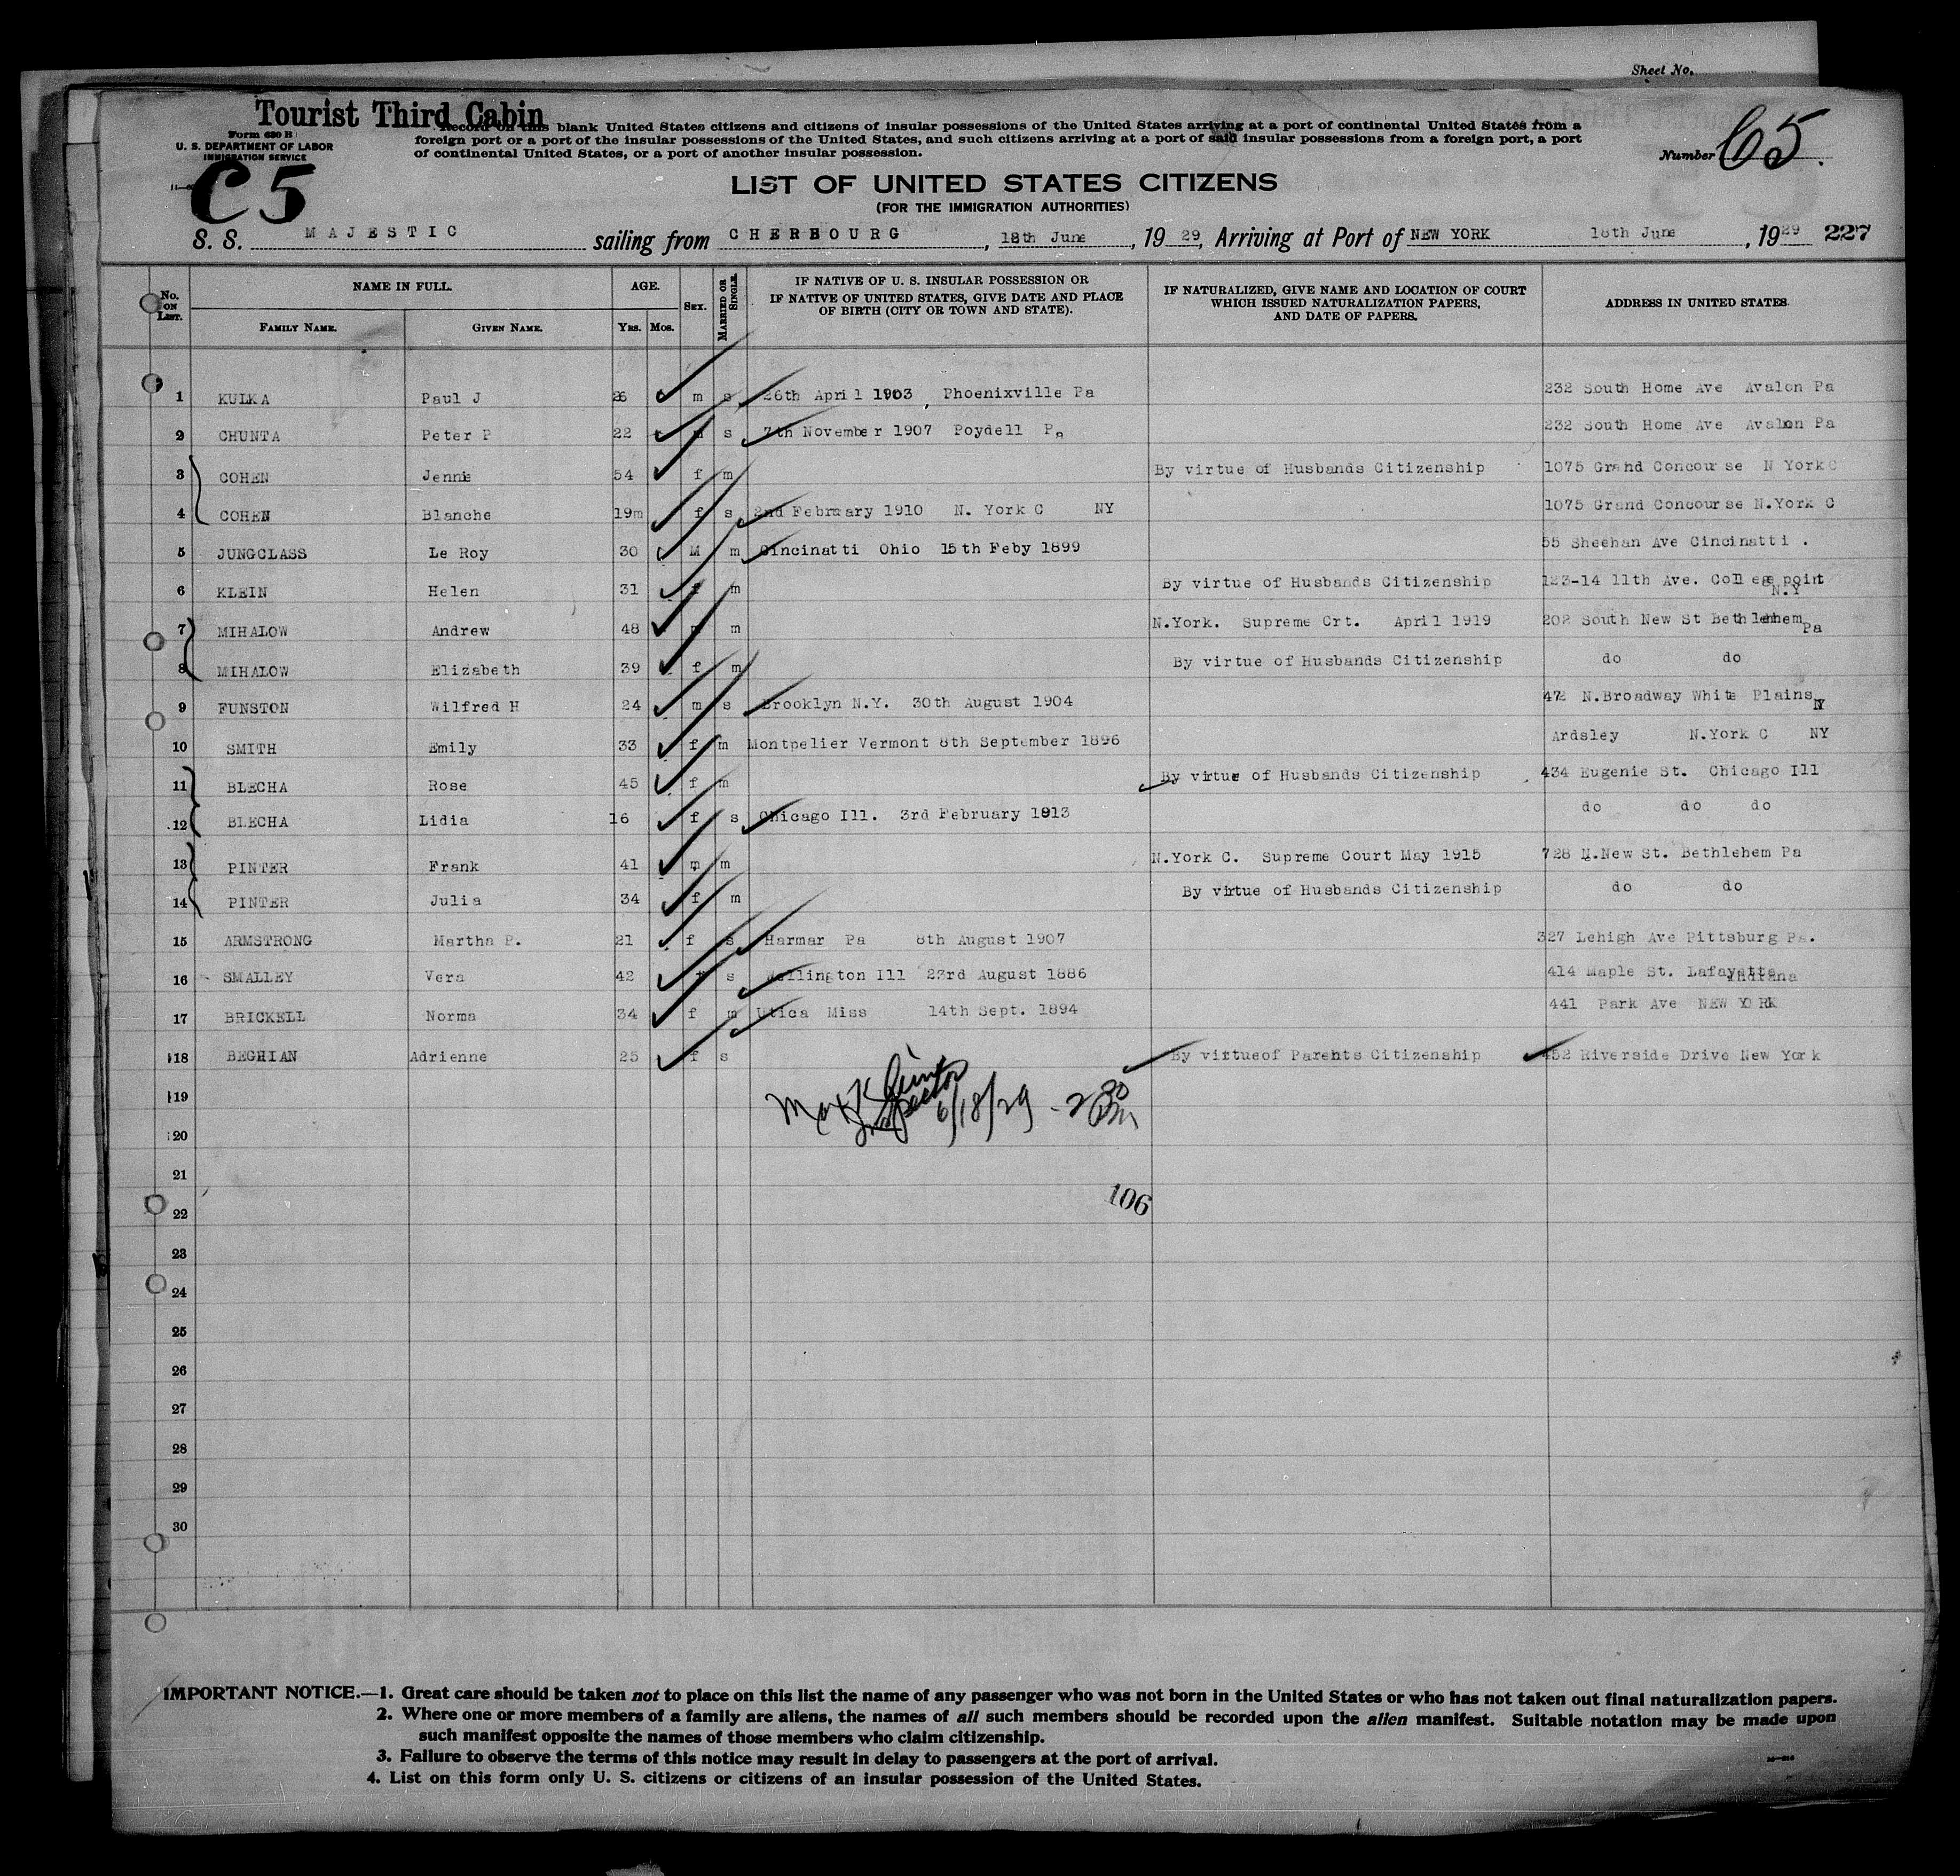 Sheet No.
Tourist Third Cabin
Form 630 B
U. S. DEPARTMENT OF LABOR
IMMIGRATION SERVICE
Record on this blank United States citizens and citizens of insular possessions of the United States arriving at a port of continental United States from a
foreign port or a port of the insular possessions of the United States, and such citizens arriving at a port of said insular possessions from a foreign port, a port
of continental United States, or a port of another insular possession.
Number C5.
C5
LIST OF UNITED STATES CITIZENS
(FOR THE IMMIGRATION AUTHORITIES)
S. S. MAJESTIC sailing from CHERBOURG, June, 1929, Arriving at Port of NEW YORK 18th June, 1929 227
No. ON LIST. NAME IN FULL. AGE. SEX. MARRIED OR SINGLE. IF NATIVE OF U. S. INSULAR POSSESSION OR IF NATIVE OF UNITED STATES, GIVE DATE AND PLACE OF BIRTH (CITY OR TOWN AND STATE). IF NATURALIZED, GIVE NAME AND LOCATION OF COURT WHICH ISSUED NATURALIZATION PAPERS, AND DATE OF PAPERS. ADDRESS IN UNITED STATES.
FAMILY NAME. GIVEN NAME. YRS. MOS.
1 KULKA Paul J 26 m s 26th April 1903, Phoenixville Pa 232 South Home Ave Avalon Pa
2 CHUNTA Peter P 22 m s 7th November 1907 Poydell Pa 232 South Home Ave Avalon Pa
3 COHEN Jennie 54 f m By virtue of Husbands Citizenship 1075 Grand Concourse N York C
4 COHEN Blanche 19m f s 2nd February 1910 N. York C NY 1075 Grand Concourse N.York C
5 JUNGCLASS Le Roy 30 M m Cincinatti Ohio 15th Feby 1899 55 Sheehan Ave Cincinatti .
6 KLEIN Helen 31 f m By virtue of Husbands Citizenship 123-14 11th Ave. College point N.Y
7 MIHALOW Andrew 48 m m N.York. Supreme Crt. April 1919 202 South New St Bethlehem Pa
8 MIHALOW Elizabeth 39 f m By virtue of Husbands Citizenship do do
9 FUNSTON Wilfred H 24 m s Brooklyn N.Y. 30th August 1904 472 N.Broadway White Plains NY
10 SMITH Emily 33 f m Montpelier Vermont 8th September 1896 Ardsley N.York C NY
11 BLECHA Rose 45 f m By virtue of Husbands Citizenship 434 Eugenie St. Chicago Ill
12 BLECHA Lidia 16 f s Chicago Ill. 3rd February 1913 do do do
13 PINTER Frank 41 m m N.York C. Supreme Court May 1915 728 N.New St. Bethlehem Pa
14 PINTER Julia 34 f m By virtue of Husbands Citizenship do do
15 ARMSTRONG Martha P. 21 f s Harmar Pa 8th August 1907 327 Lehigh Ave Pittsburg Pa.
16 SMALLEY Vera 42 f s Wellington Ill 23rd August 1886 414 Maple St. Lafayette Indiana
17 BRICKELL Norma 34 f m Utica Miss 14th Sept. 1894 441 Park Ave NEW YORK
18 BEGHIAN Adrienne 25 f s By virtueof Parents Citizenship 452 Riverside Drive New York
19 Max Inspector 6/18/29 - 2 30 PM
20
21
22 106
23
24
25
26
27
28
29
30
IMPORTANT NOTICE.—1. Great care should be taken not to place on this list the name of any passenger who was not born in the United States or who has not taken out final naturalization papers.
2. Where one or more members of a family are aliens, the names of all such members should be recorded upon the alien manifest. Suitable notation may be made upon
such manifest opposite the names of those members who claim citizenship.
3. Failure to observe the terms of this notice may result in delay to passengers at the port of arrival.
4. List on this form only U. S. citizens or citizens of an insular possession of the United States.